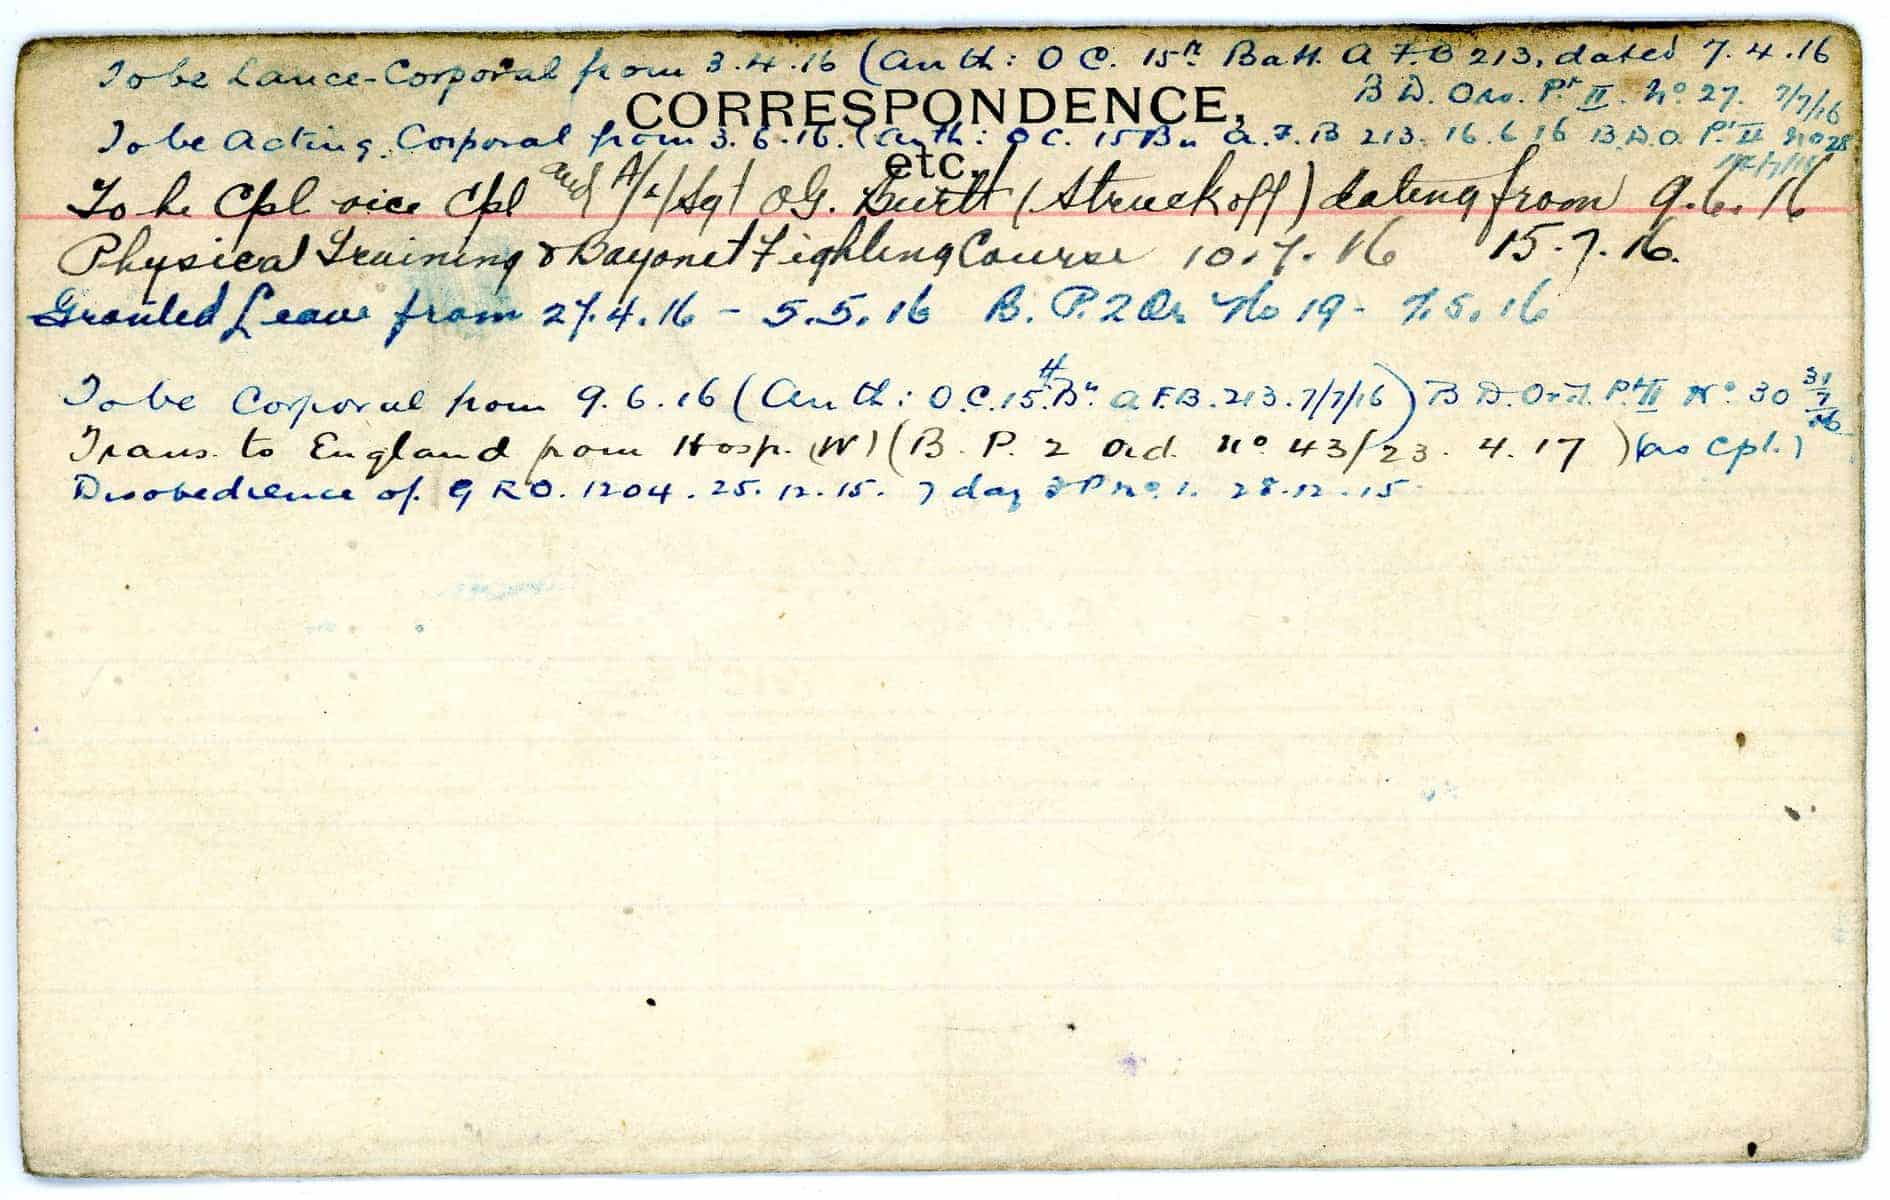 To be Lance-Corporal from 3.4.16 (Auth: O C. 15th Batt. A F.B 213, dated 7.4.16
B D. Ord. Pt II. No 27. 7/7/16
CORRESPONDENCE,
To be Acting Corporal from 3.6.16. (Auth: O C. 15 Bn A.F.B 213. 16.6.16 B.D.O. Pt II No 28
etc.
To be Cpl vice Cpl and A/L/Sgt O G. (Struck off) dating from 9.6.16
Physical Training & Bayonet Fighting Course 10.7.16 15.7.16.
Granted Leave from 27.4.16 - 5.5.16 B. P. 2 Or No 19 - 7.5.16
To be Corporal from 9.6.16 (Auth: O.C. 15th Bn A F.B. 213. 7/7/16) B D. Ord. Pt II No 30 31/7/16
Trans. to England from Hosp. (W) (B. P. 2 Ord. No 43/23. 4. 17) (as Cpl.)
Disobedience of G R O. 1204. 25.12.15. 7 day F P No 1. 28.12.15